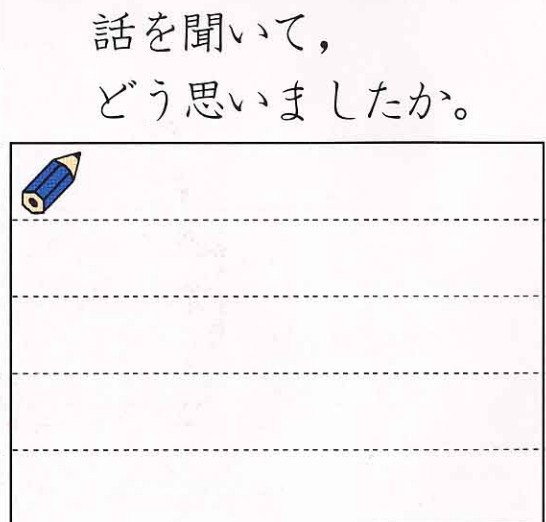 話を聞いて，
どう思いましたか。